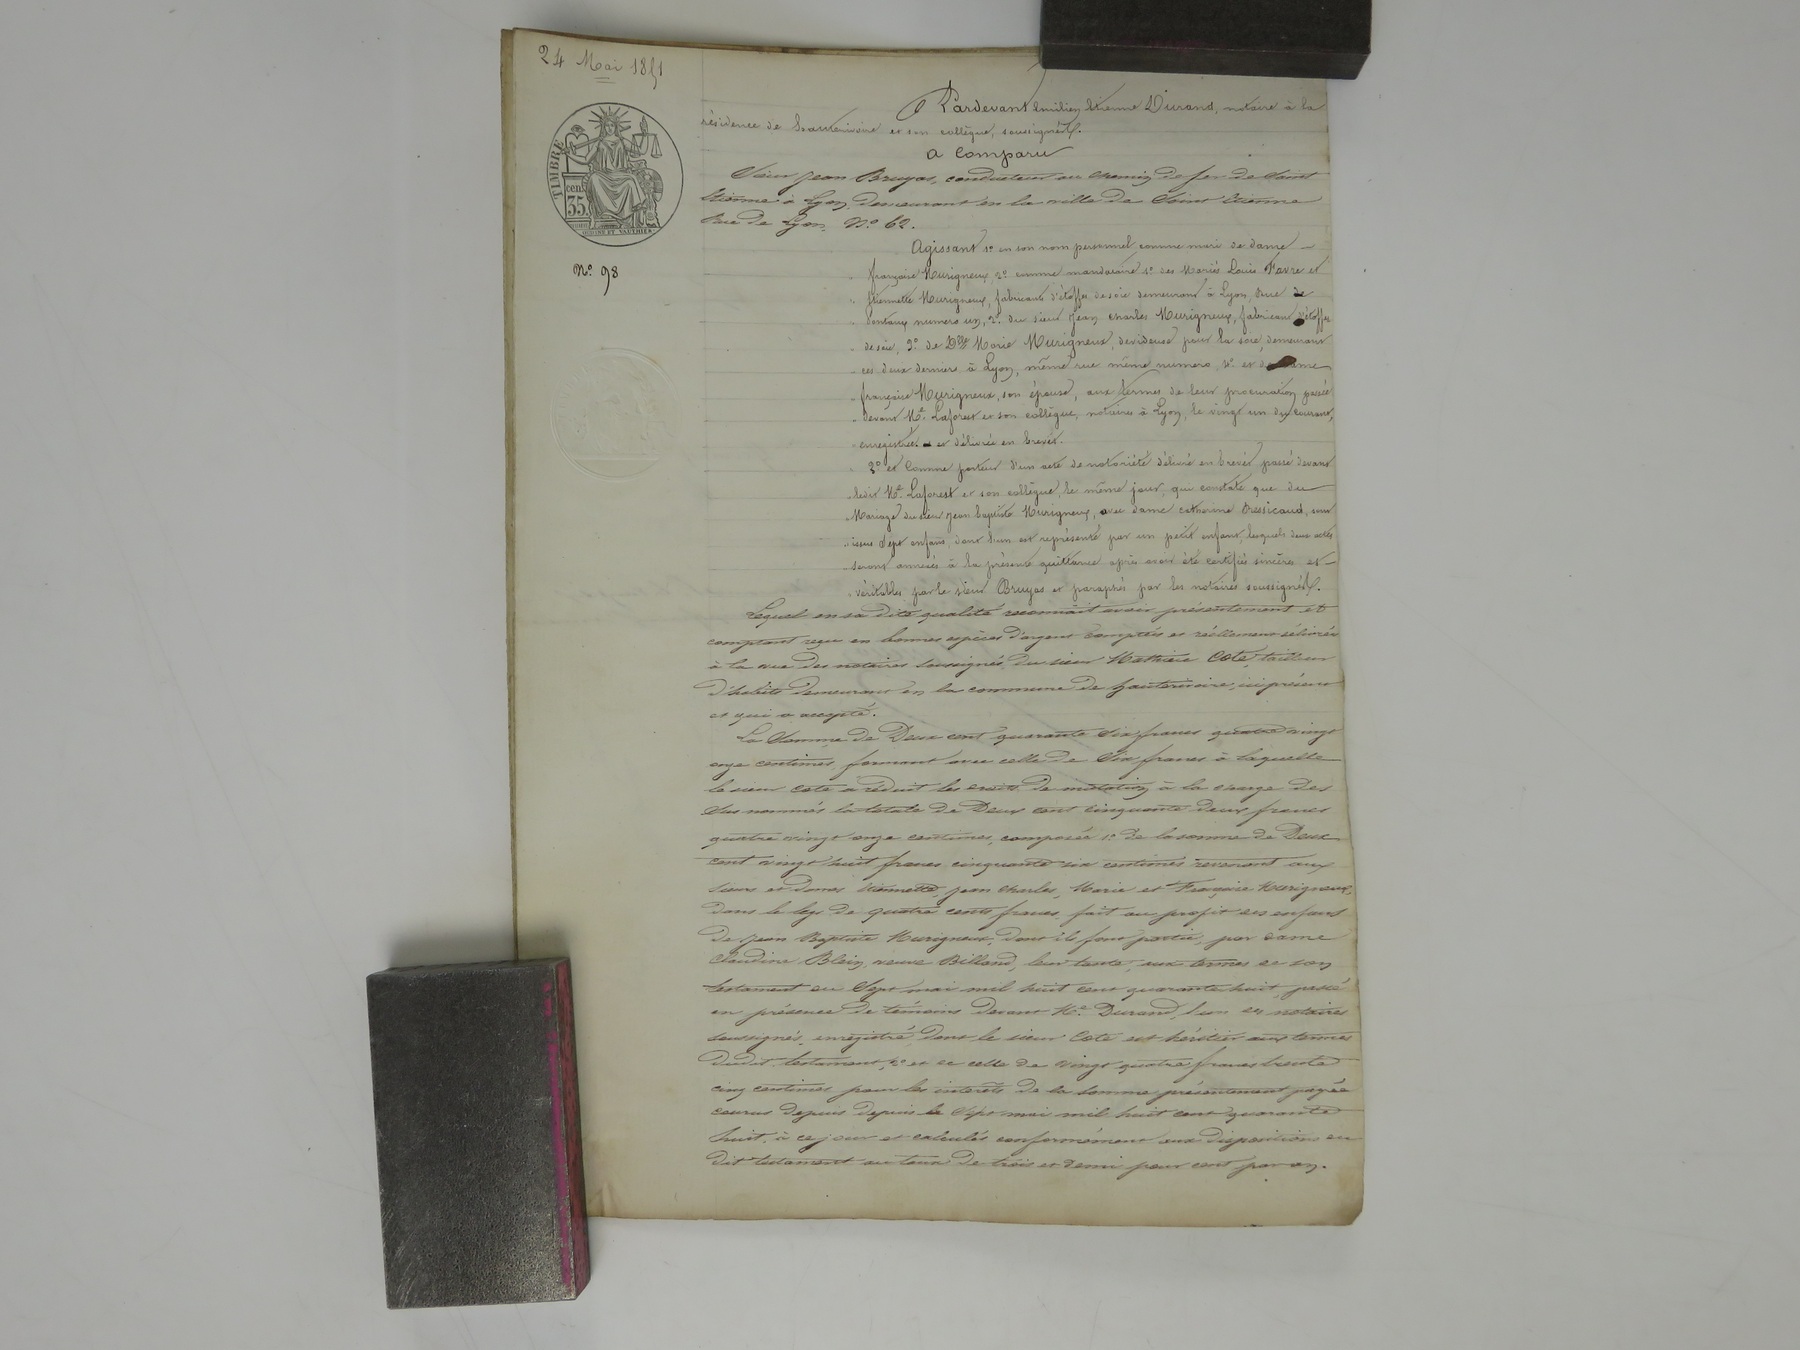 24 Mai 1851
TIMBRE
cen.
35
OUDINE ET VAUTHIER
N° 98
Pardevant Emilien Etienne Durand, notaire à la
résidence de et son collègue, soussignés.
a Comparu
Sieur Jean Bruyas, conducteur au chemin de fer de Saint
Etienne à Lyon, demeurant en la ville de Saint Etienne
Rue de Lyon, N° 62.
Agissant 1° en son nom personnel comme mari de dame
françoise Murigneux, 2° comme mandataire 1° des Mariés Louis Favre et
Etiennette Murigneux, fabricans d'étoffes de soie demeurant à Lyon, Rue de
numéro un, 2° du sieur Jean Charles Murigneux, fabricant d'étoffes
de soie, 3° de Dlle Marie Murigneux, devideuse pour la soie, demeurant
ces deux derniers à Lyon, même rue même numéro, 4° et de dame
françoise Murigneux, son épouse, aux termes de leur procuration passée
devant Me Laforest et son collègue, notaires à Lyon, le vingt un du courant,
enregistrée et délivrée en brevet.
3° et Comme porteur d'un acte de notoriété délivré en brevet passé devant
ledit Me Laforest et son collègue, le même jour, qui constate que du
Mariage du sieur Jean baptiste Murigneux, avec dame catherine Bressicaud, sont
issus Sept enfans, dont l'un est représenté par un petit enfant, lesquels deux actes
seront annexés à la présente quittance après avoir été certifiés sincères et
véritables par le sieur Bruyas et paraphés par les notaires soussignés.
Lequel en sa dite qualité reconnait avoir présentement et
comptant reçu en bonnes espèces d'argent comptées et réellement délivrées
à la vue des notaires soussignés, du sieur Mathieu Cote tailleur
d'habits demeurant en la commune de hauterivoire, ici présent
et qui a accepté.
La Somme de Deux cent quarante Six francs quatre vingt
onze centimes, formant avec celle de Six francs à laquelle
le sieur Cote a réduit les droits de mutation à la charge des
Sus nommés la totale de Deux cent cinquante deux francs
quatre vingt onze centimes, composée 1° de la somme de Deux
cent vingt huit francs cinquante six centimes revenant aux
sieurs et dames Etiennette, Jean Charles, Marie et Françoise Murigneux,
dans le legs de quatre cents francs, fait au profit des enfans
de Jean Baptiste Murigneux, dont ils font partie, par dame
Claudine Blein, veuve Billand, leur tante, aux termes de son
testament du Sept mai mil huit cent quarante huit, passé
en présence de témoins devant Me Durand, l'un des notaires
soussignés, enregistré, dont le sieur Cote est héritier aux termes
dudit testament, 2° et de celle de vingt quatre francs trente
cinq centimes pour les intérêts de la somme présentement payée
courus depuis depuis le Sept mai mil huit cent quarante
huit, à ce jour et calculés conformément aux dispositions du
dit testament au taux de trois et demi pour cent par an.